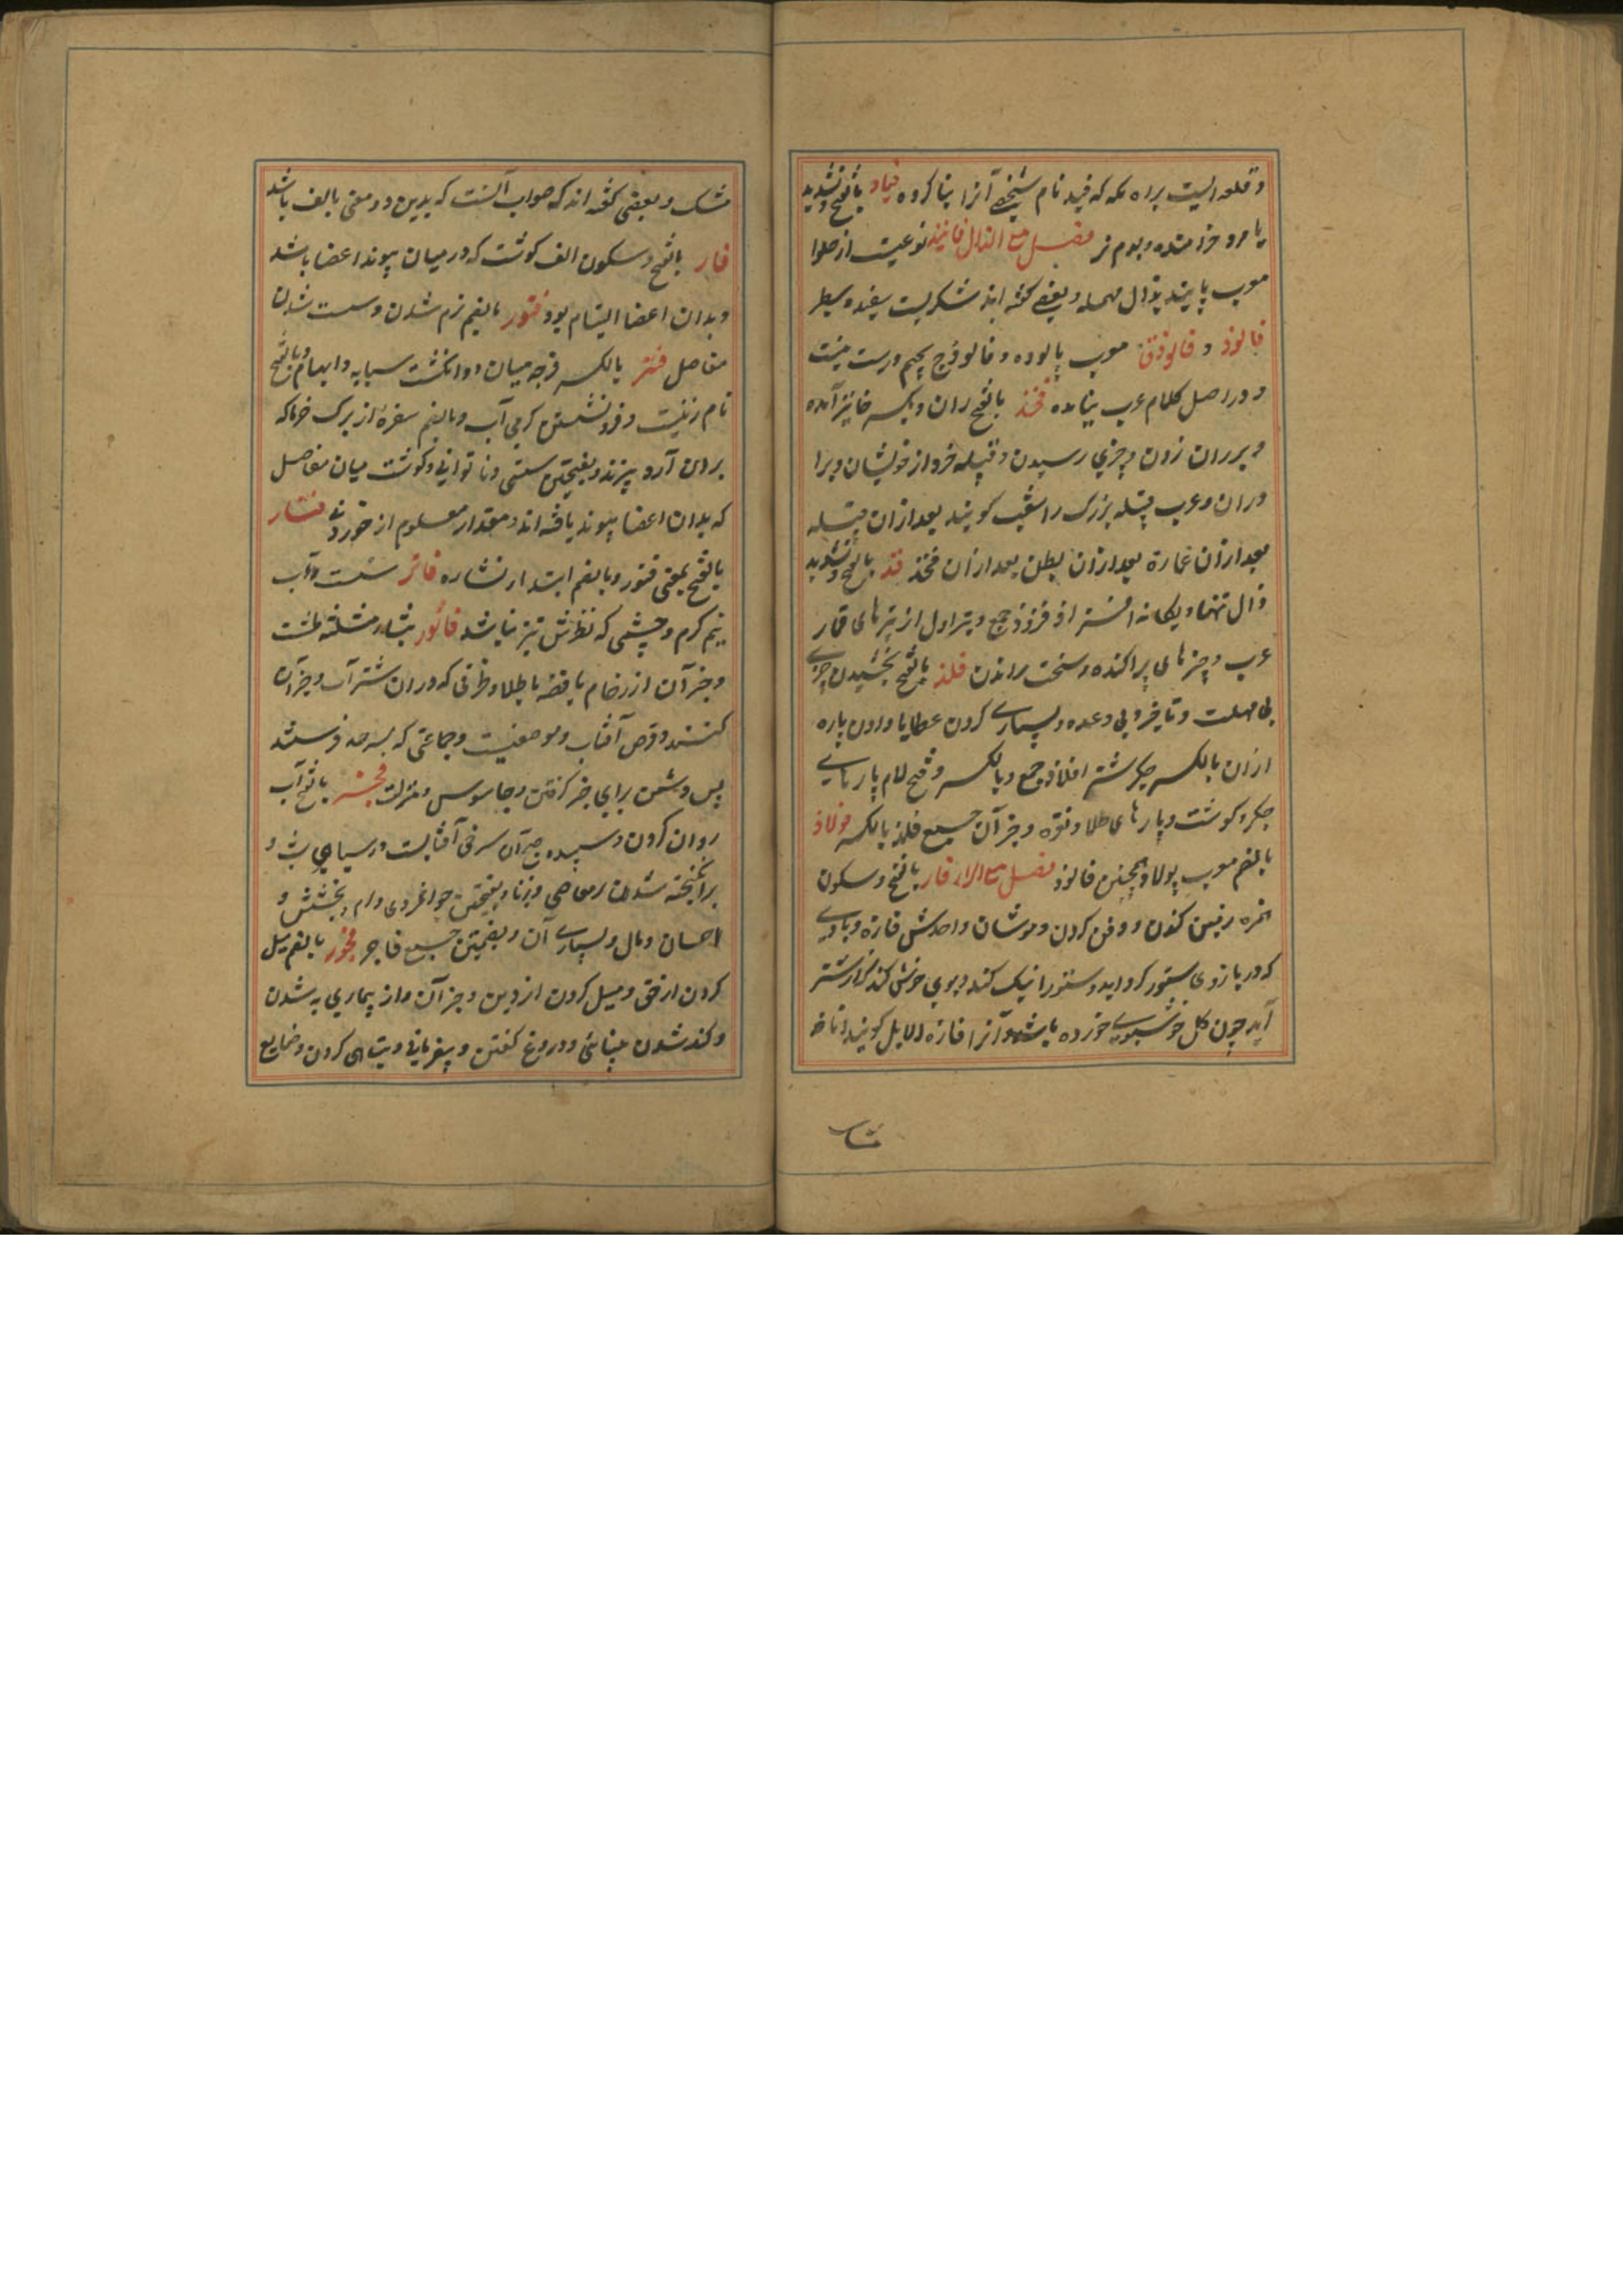 و قلعه ایست براه مکه که فید نام شخصی آنرا بنا کرده فیاد بالفتح و تشدید
یا مرد خرامنده و بوم نر فصل مع الذال فانیذ نوعیست از حلوا
معرب پانید بدال مهمله و بعضی گفته اند شکریست سفید
فالوذ و فالوذق معرب پالوده و فالوذج بجیم درست نیست
و در اصل کلام عرب نیامده فخذ بالفتح ران و بکسر خا نیز آمده
و بر ران زدن و چیزی رسیدن و قبیله خرد از خویشان
و عرب قبیله بزرک را شعب کویند بعد ازان قبیله
بعد ازان عمارة بعد ازان بطن بعد ازان فخذ فذ بالفتح و تشدید
ذال تنها و یکانه افذاذ فذوذ جمع و تیر اول از تیرهای قمار
عرب و چیزهای پراکنده و سخت راندن فلذ بالفتح بخشیدن چیزی
بی مهلت و تاخیر و بی وعده و بسیاری کردن عطا یا دادن پاره
ازان بالکسر جکر شتر افلاذ جمع و بالکسر و فتح لام پارهای
جکر و کوشت و پارهای طلا و نقره و جز آن جمیع فلذ بالکسر فولاذ
بالضم معرب پولاد و همچنین فالوذ فصل مع الراء فار بالفتح و سکون
همزه زمین کندن و دفن کردن و موشان واحدش فارة و بادی
که در بازوی ستور کرد اید و بوی خوش که از شتر
آید چون کل خوشبوی خورده باشد و آنرا فارة الابل کویند و نافه
مشک
مشک و بعضی کفته اند که صواب آنست که بدین دو معنی بالف باشد
فار بالفتح و سکون الف کوشت که در میان پیوند اعضا باشد
و بدان اعضا التیام بود فتور بالضم نرم شدن و سست شدن
مفاصل فتر بالکسر فرجه میان دو انکشت سبابه و ابهام و بالفتح
نام زنیست و فرونشستن کرمی آب و بالضم سفره از برک خرما که
بران آرد بیزند و بفتحتین سستی و ناتوانی و کوشت میان مفاصل
که بدان اعضا پیوند یافته اند و مقدار معلوم از خوردنی فتار
بالفتح بمعنی فتور و بالضم ابتدار نشاره فاتر سست و آب
نیم کرم و چشمی که نظرش تیز نباشد فاثور بثاء مثلثه طشت
و جز آن از رخام یا فضه یا طلا و ظرفی که دران شراب و جز آن
کنند و قرص آفتاب و موضعیست و جماعتی که بسرحد فرستند
پس دشمن برای خبر کرفتن و جاسوس و منزلت فجر بالفتح آب
روان کردن و سپیده صبح و آن سرخی آفتابست در سیاهی شب و
برانکیخته شدن در معاصی و زنا و بفتحتین جوانمردی و کرم و بخشش و
احسان و مال و بسیاری آن و بضمتین جمیع فاجر فجور بالضم میل
کردن از حق و میل کردن از دین و جز آن و از بیماری به شدن
و کند شدن بینائی و دروغ کفتن و بیفرمانی و تباهی کردن و ضایع